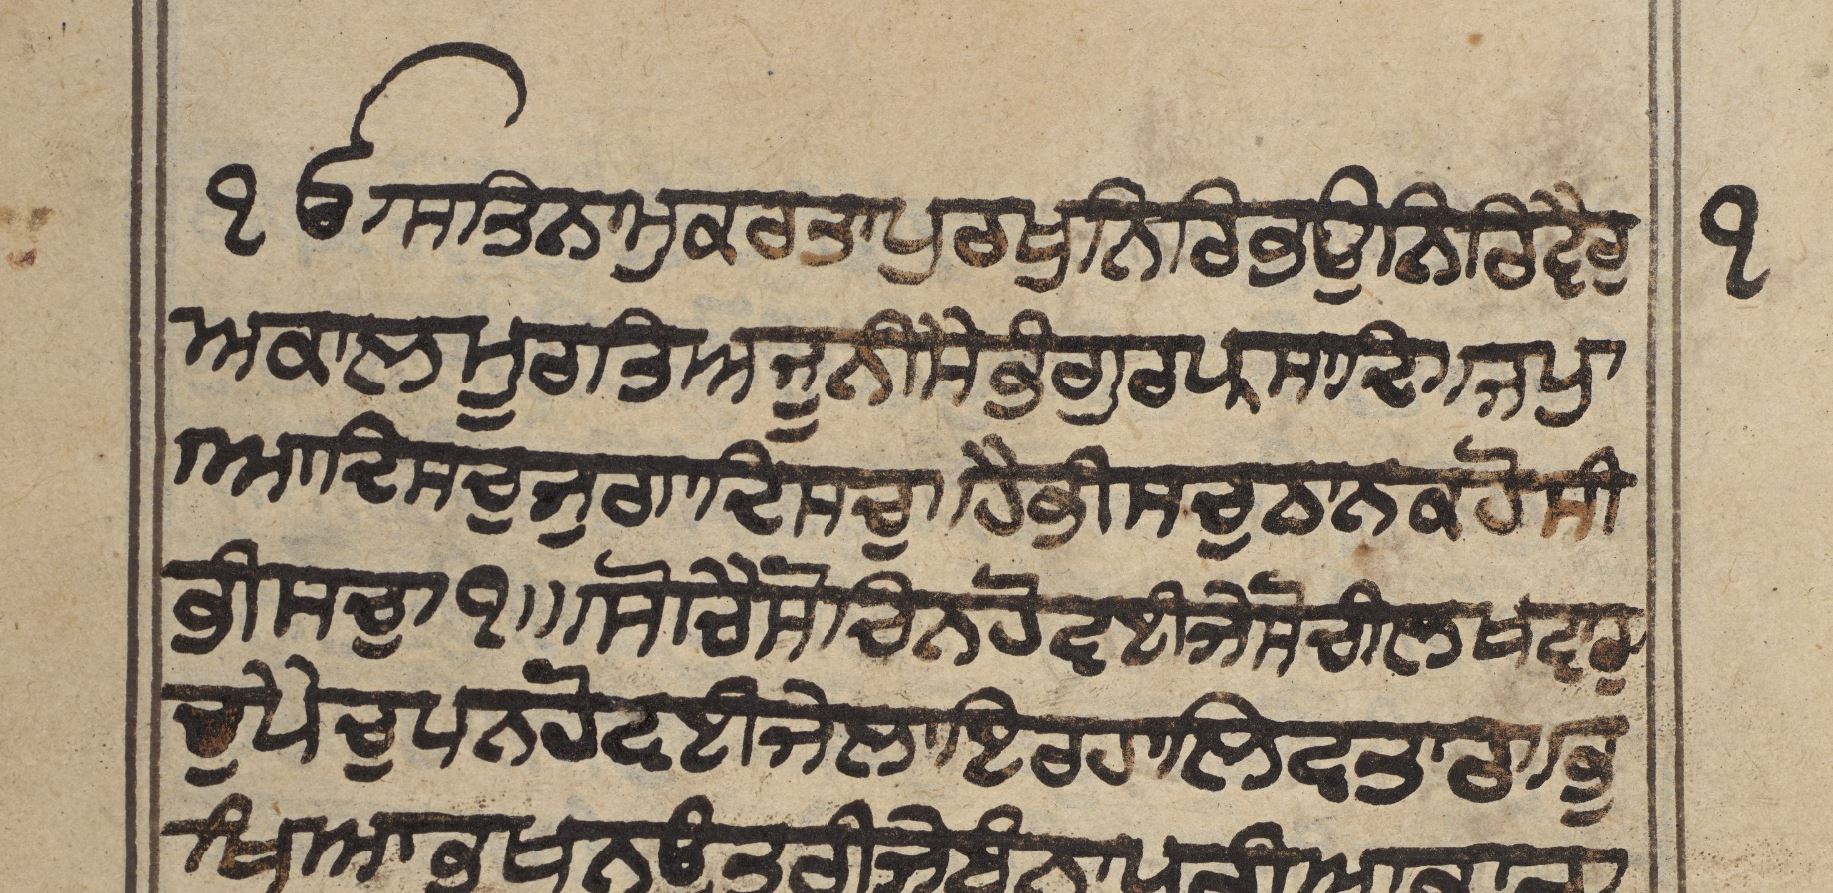 ੧ਓ ਸਤਿਨਾਮੁ ਕਰਤਾ ਪੁਰਖੁ ਨਿਰਭਉ ਨਿਰਵੈਰੁ ੧
ਅਕਾਲ ਮੂਰਤਿ ਅਜੂਨੀ ਸੈਭੰ ਗੁਰਪ੍ਰਸਾਦਿ ॥ਜਪੁ॥
ਆਦਿ ਸਚੁ ਜੁਗਾਦਿ ਸਚੁ ॥ਹੈ ਭੀ ਸਚੁ ਨਾਨਕ ਹੋਸੀ
ਭੀ ਸਚੁ॥੧॥ ਸੋਚੈ ਸੋਚਿ ਨ ਹੋਵਈ ਜੇ ਸੋਚੀ ਲਖ ਵਾਰ
ਚੁਪੈ ਚੁਪ ਨ ਹੋਵਈ ਜੇ ਲਾਇ ਰਹਾ ਲਿਵ ਤਾਰ॥ਭੁ
ਖਿਆ ਭੁਖ ਨ ਉਤਰੀ ਜੇ ਬੰਨਾ ਪੁਰੀਆ ਭਾਰ